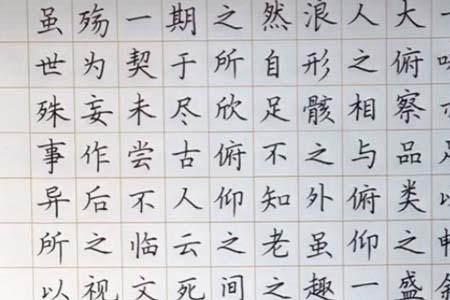 大俯察品类之盛
人之相与俯仰一
浪形骸之外虽趣
然自足不知老之
之所欣俯仰之间
期于尽古人云死
一契未尝不临文
殇为妄作后之视
虽世殊事异所以